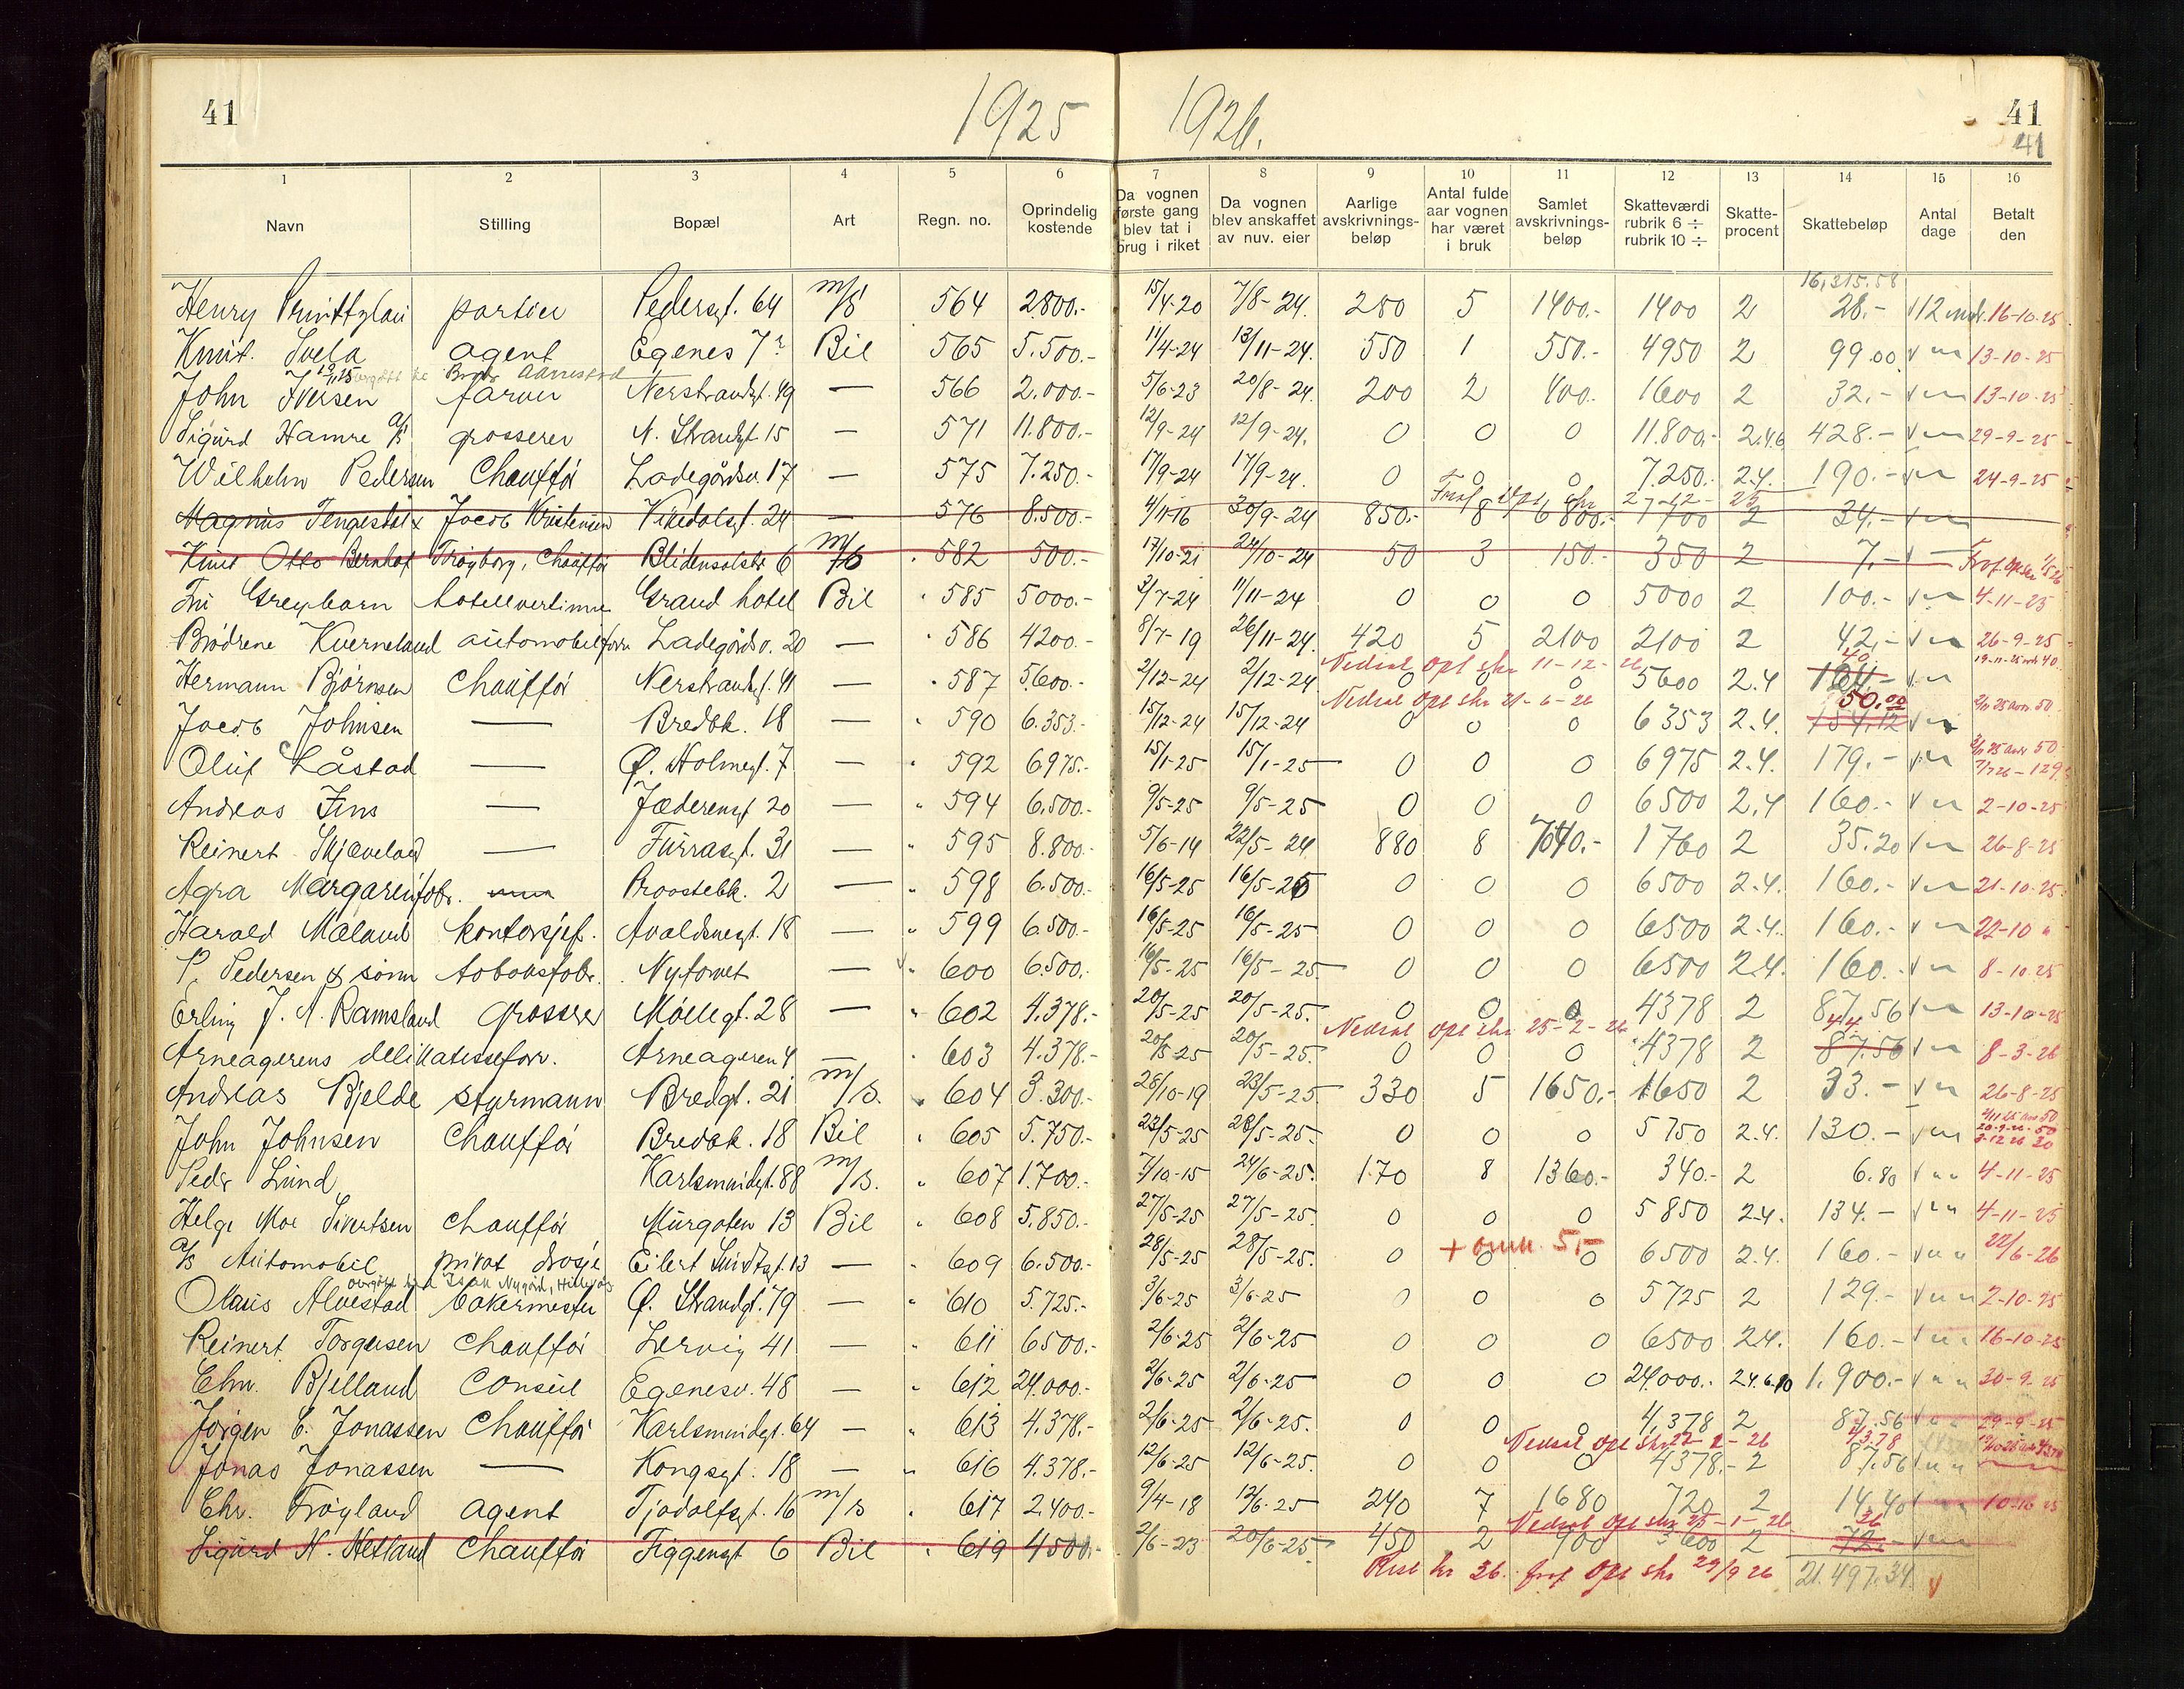 41 1925 1926. 41
41
1 2 3 4 5 6 7 8 9 10 11 12 13 14 15 16
Navn Stilling Bopæl Art Regn. no. Oprindelig kostende Da vognen første gang blev tat i brug i riket Da vognen blev anskaffet av nuv. eier Aarlige avskrivnings-beløp Antal fulde aar vognen har været i bruk Samlet avskrivnings-beløp Skatteværdi rubrik 6 ÷ rubrik 10 ÷ Skatte-procent Skattebeløp Antal dage Betalt den
16,315.58
Henry portier Pedersgt. 64 m/s 564 2800.- 15/4-20 7/8-24. 280 5 1400.- 1400 2 28.- 12 mdr. 16-10-25
Knut. Svela agent Egenes 7 Bil 565 5.500.- 11/4-24 13/11-24. 550 1 550.- 4950 2 99.00 13-10-25
John Iversen farver Nerstrandgt. 49 — 566 2.000.- 5/6-23 20/8-24. 200 2 400.- 1600 2 32.- 13-10-25
Sigurd Hamre a/s grosserer N. Strandgt. 15 — 571 11.800.- 12/9-24 12/9-24. 0 0 0 11.800.- 2.4.6 428.- 29-9-25
Wilhelm Pedersen Chauffør Ladegårdsv. 17 — 575 7.250.- 17/9-24 17/9-24. 0 0 0 7.250.- 2.4. 190.- 24-9-25
Fraf. Opl skr 27-12-25
Magnus Tengesdal x Jacob Kristensen Vikedalsgt. 24 — 576 8.500.- 4/11-16 30/9-24 850.- 8 6800.- 1700 2 34.-
Knut Otto Bernhof Trøyborg, Chauffør Blidensolstr 6 m/s 582 500.- 17/10-21 24/10-24 50 3 150.- 350 2 7.- Fraf. Opl skr 1/5 26
Fru Greyharn hotellvertinne Grand hotel Bil 585 5000.- 3/7-24 11/11-24 0 0 0 5000 2 100.- 4-11-25
Brødrene Kverneland automobilforr Ladegårdsv. 20 — 586 4200.- 8/7-19 26/11-24. 420 5 2100 2100 2 42.- 26-9-25
Nedsat opl skr 11-12- 40 19-11-25 40.
Hermann Bjørnsen Chauffør Nerstrandgt. 41 — 587 5600.- 2/12-24 2/12-24 0 0 0 5600 2.4 124.-
Nedsat opl skr 21-6-26 50.00 50
Jacob Johnsen — Bredbk. 18 — 590 6.353.- 15/12-24 15/12-24 0 0 0 6353 2.4. 154.12
Oluf Låstad — Ø. Holmegt. 7 — 592 6975.- 15/1-25 15/1-25 0 0 0 6975 2.4. 179.- 50 7/7 26 - 129
Andreas Fins — Jæderengt 20 — 594 6.500.- 9/5-25 9/5-25 0 0 0 6500 2.4 160.- 2-10-25
Reinert Skjæveland — Furrasgt. 31 — 595 8.800.- 5/6-14 22/5-24 880 8 7040.- 1760 2 35.20 26-8-25
Agra Margarinfabr. Provstebk. 2 — 598 6.500.- 16/5-25 16/5-25 0 0 0 6500 2.4. 160.- 21-10-25.
Harald Maland kontorsjef. Avaldsnesgt. 18 — 599 6.500.- 16/5-25 16/5-25 0 0 0 6500 2.4. 160.- 22-10 "
P. Pedersen & sønn tobaksfabr. Nytorvet — 600 6.500.- 16/5-25 16/5-25. 0 0 0 6500 2.4. 160.- 8-10-25
Erling J. A. Ramsland grosserer Møllegt. 28 — 602 4.378.- 20/5-25 20/5-25. 0 0 0 4378 2 87.56 13-10-25
Nedsat opl skr 25-2-26 44
Arneagerens delikatesseforr. Arneageren 4 — 603 4.378.- 20/5-25 20/5-25. 0 0 0 4378 2 87.56 8-3-26
Andreas Bjelde styrmann Bredgt. 21 m/s. 604 3.300.- 28/10-19 23/5-25 330 5 1650.- 1650 2 33.- 26-8-25
John Johnsen Chauffør Bredbk. 18 Bil 605 5.750.- 23/5-25 28/5-25. 0 0 0 5750 2.4. 130.- 50 8-12 26 30
Peder Lund Karlsmindegt. 88 m/s. 607 1.700.- 7/10-15 24/6-25. 170 8 1360.- 340.- 2 6.80 4-11-25
Helge Moe Sivertsen chauffør Murgaten 13 Bil 608 5.850.- 27/5-25 27/5-25. 0 0 0 5850 2.4. 134.- 4-11-25
+ omk. 5,-
a/s Automobil privat drosje Eilert Sundtsgt. 13 — 609 6.500.- 28/5-25 28/5-25. 0 0 0 6500 2.4. 160.- 22/6-26
Olaus Alvestad bakermester Ø. Strandgt. 79 — 610 5.725.- 3/6-25 3/6-25 0 0 0 5725 2 129.- 2-10-25
Reinert Torgersen Chauffør Lervig 41 — 611 6500.- 2/6-25 2/6-25 0 0 0 6500 2.4. 160.- 16-10-25
Chr. Bjelland Consul Egenesv. 48 — 612 24.000.- 2/6-25 2/6-25 0 0 0 24.000.- 2.4.6.10 1.900.- 30-9-25
Jørgen C. Jonassen Chauffør Karlsmindegt. 64 — 613 4.378.- 2/6-25 2/6-25. 0 0 0 4.378 2 87.56 29-9-25
Nedsat Opl skr 22-2-26 43.78
Jonas Jonassen — Kongsgt. 18 — 616 4.378.- 12/6-25 12/6-25. 0 0 0 4378.- 2 87.56
Chr. Frøyland agent Tjodolfsgt. 16 m/s 617 2.400.- 9/4-18 12/6-25 240 7 1680 720 2 14.40 10-10-25
Nedsat opl skr 25-1-26 36
Sigurd N. Hetland Chauffør Figgengt 6 Bil 619 4500.- 2/6-23 20/6-25 450 2 900 3600 2 72.-
Rest kr 36. fraf opl skr 29/9 26 21.497.34